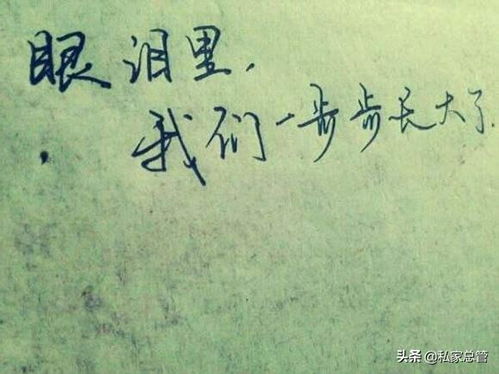 眼泪里，
我们一步步长大了.
头条@私家总管